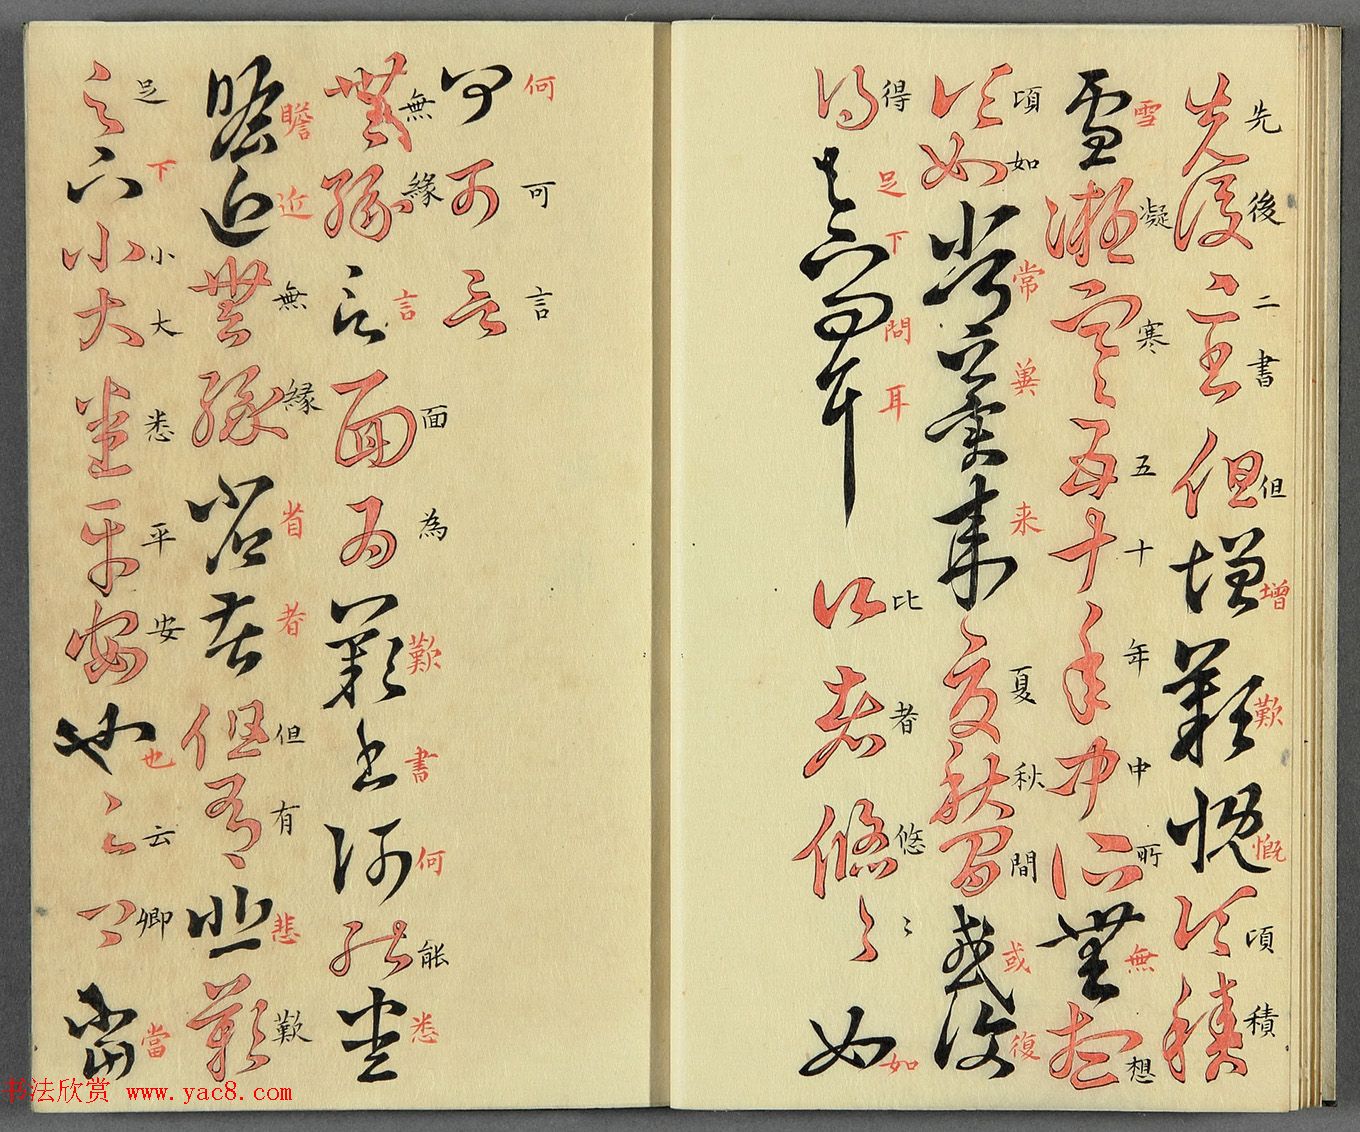 先後二書但增歎慨頃積
雪凝寒五十年中所無想
頃如常冀来夏秋間或復
得足下問耳比者悠〻如
何可言
無緣言面為歎書何能悉
瞻近無縁省者但有悲歎
足下小大悉平安也云卿當
书法欣赏 www.yac8.com